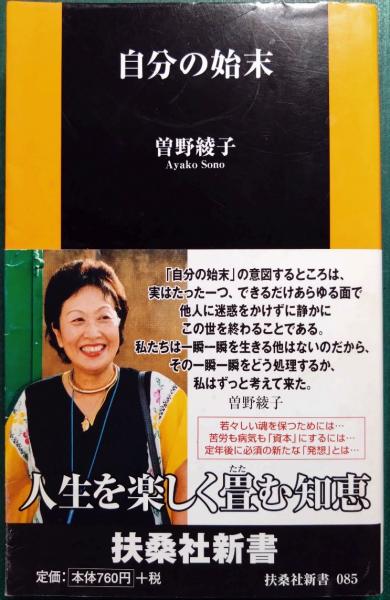 自分の始末
曽野綾子
Ayako Sono
「自分の始末」の意図するところは、
実はたった一つ、できるだけあらゆる面で
他人に迷惑をかけずに静かに
この世を終わることである。
私たちは一瞬一瞬を生きる他はないのだから、
その一瞬一瞬をどう処理するか、
私はずっと考えて来た。
曽野綾子
若々しい魂を保つためには…
苦労も病気も「資本」にするには…
定年後に必須の新たな「発想」とは…
たた
人生を楽しく畳む知恵
扶桑社新書
定価：本体760円＋税
扶桑社新書 085